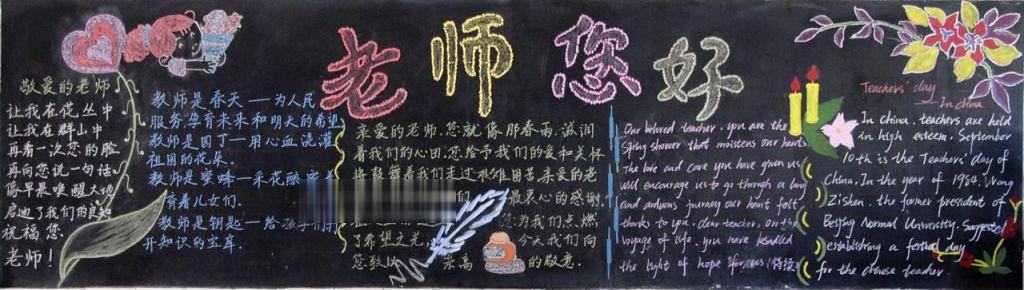 老师您好
敬爱的老师
让我在花丛中
让我在群山中
再看一次您的脸
再向您说一句话
像早晨唤醒大地
启迪了我们的良知
祝福您
老师！
教师是春天——为人民
服务孕育未来和明天的希望
教师是园丁——用心血浇灌
祖国的花朵
教师是蜜蜂——采花酿蜜
育着儿女们
教师是钥匙——给孩子们打
开知识的宝库
亲爱的老师，您就像那春雨，滋润
着我们的心田。您给予我们的爱和关怀
将鼓舞着我们走过艰难困苦。亲爱的老
们 最衷心的感谢.
您为我们点燃
了希望之光 今天我们向
您致以 崇高 的敬意.
Our beloved teacher, you are the
Spring shower that moistens our hearts.
The love and care you have given us
will encourage us to go through a long
and arduous journey our heart felt
thanks to you, dear teacher, On the
voyage of life, you have kindled
the light of hope for us
Teachers' day
— In china
In china, teachers are held
in high esteem. September
10th is the Teachers' day of
China. In the year of 1984, Wang
Zishen, the former president of
Beijing Normal University, Suggested
establishing a festival day
for the chinese teacher.